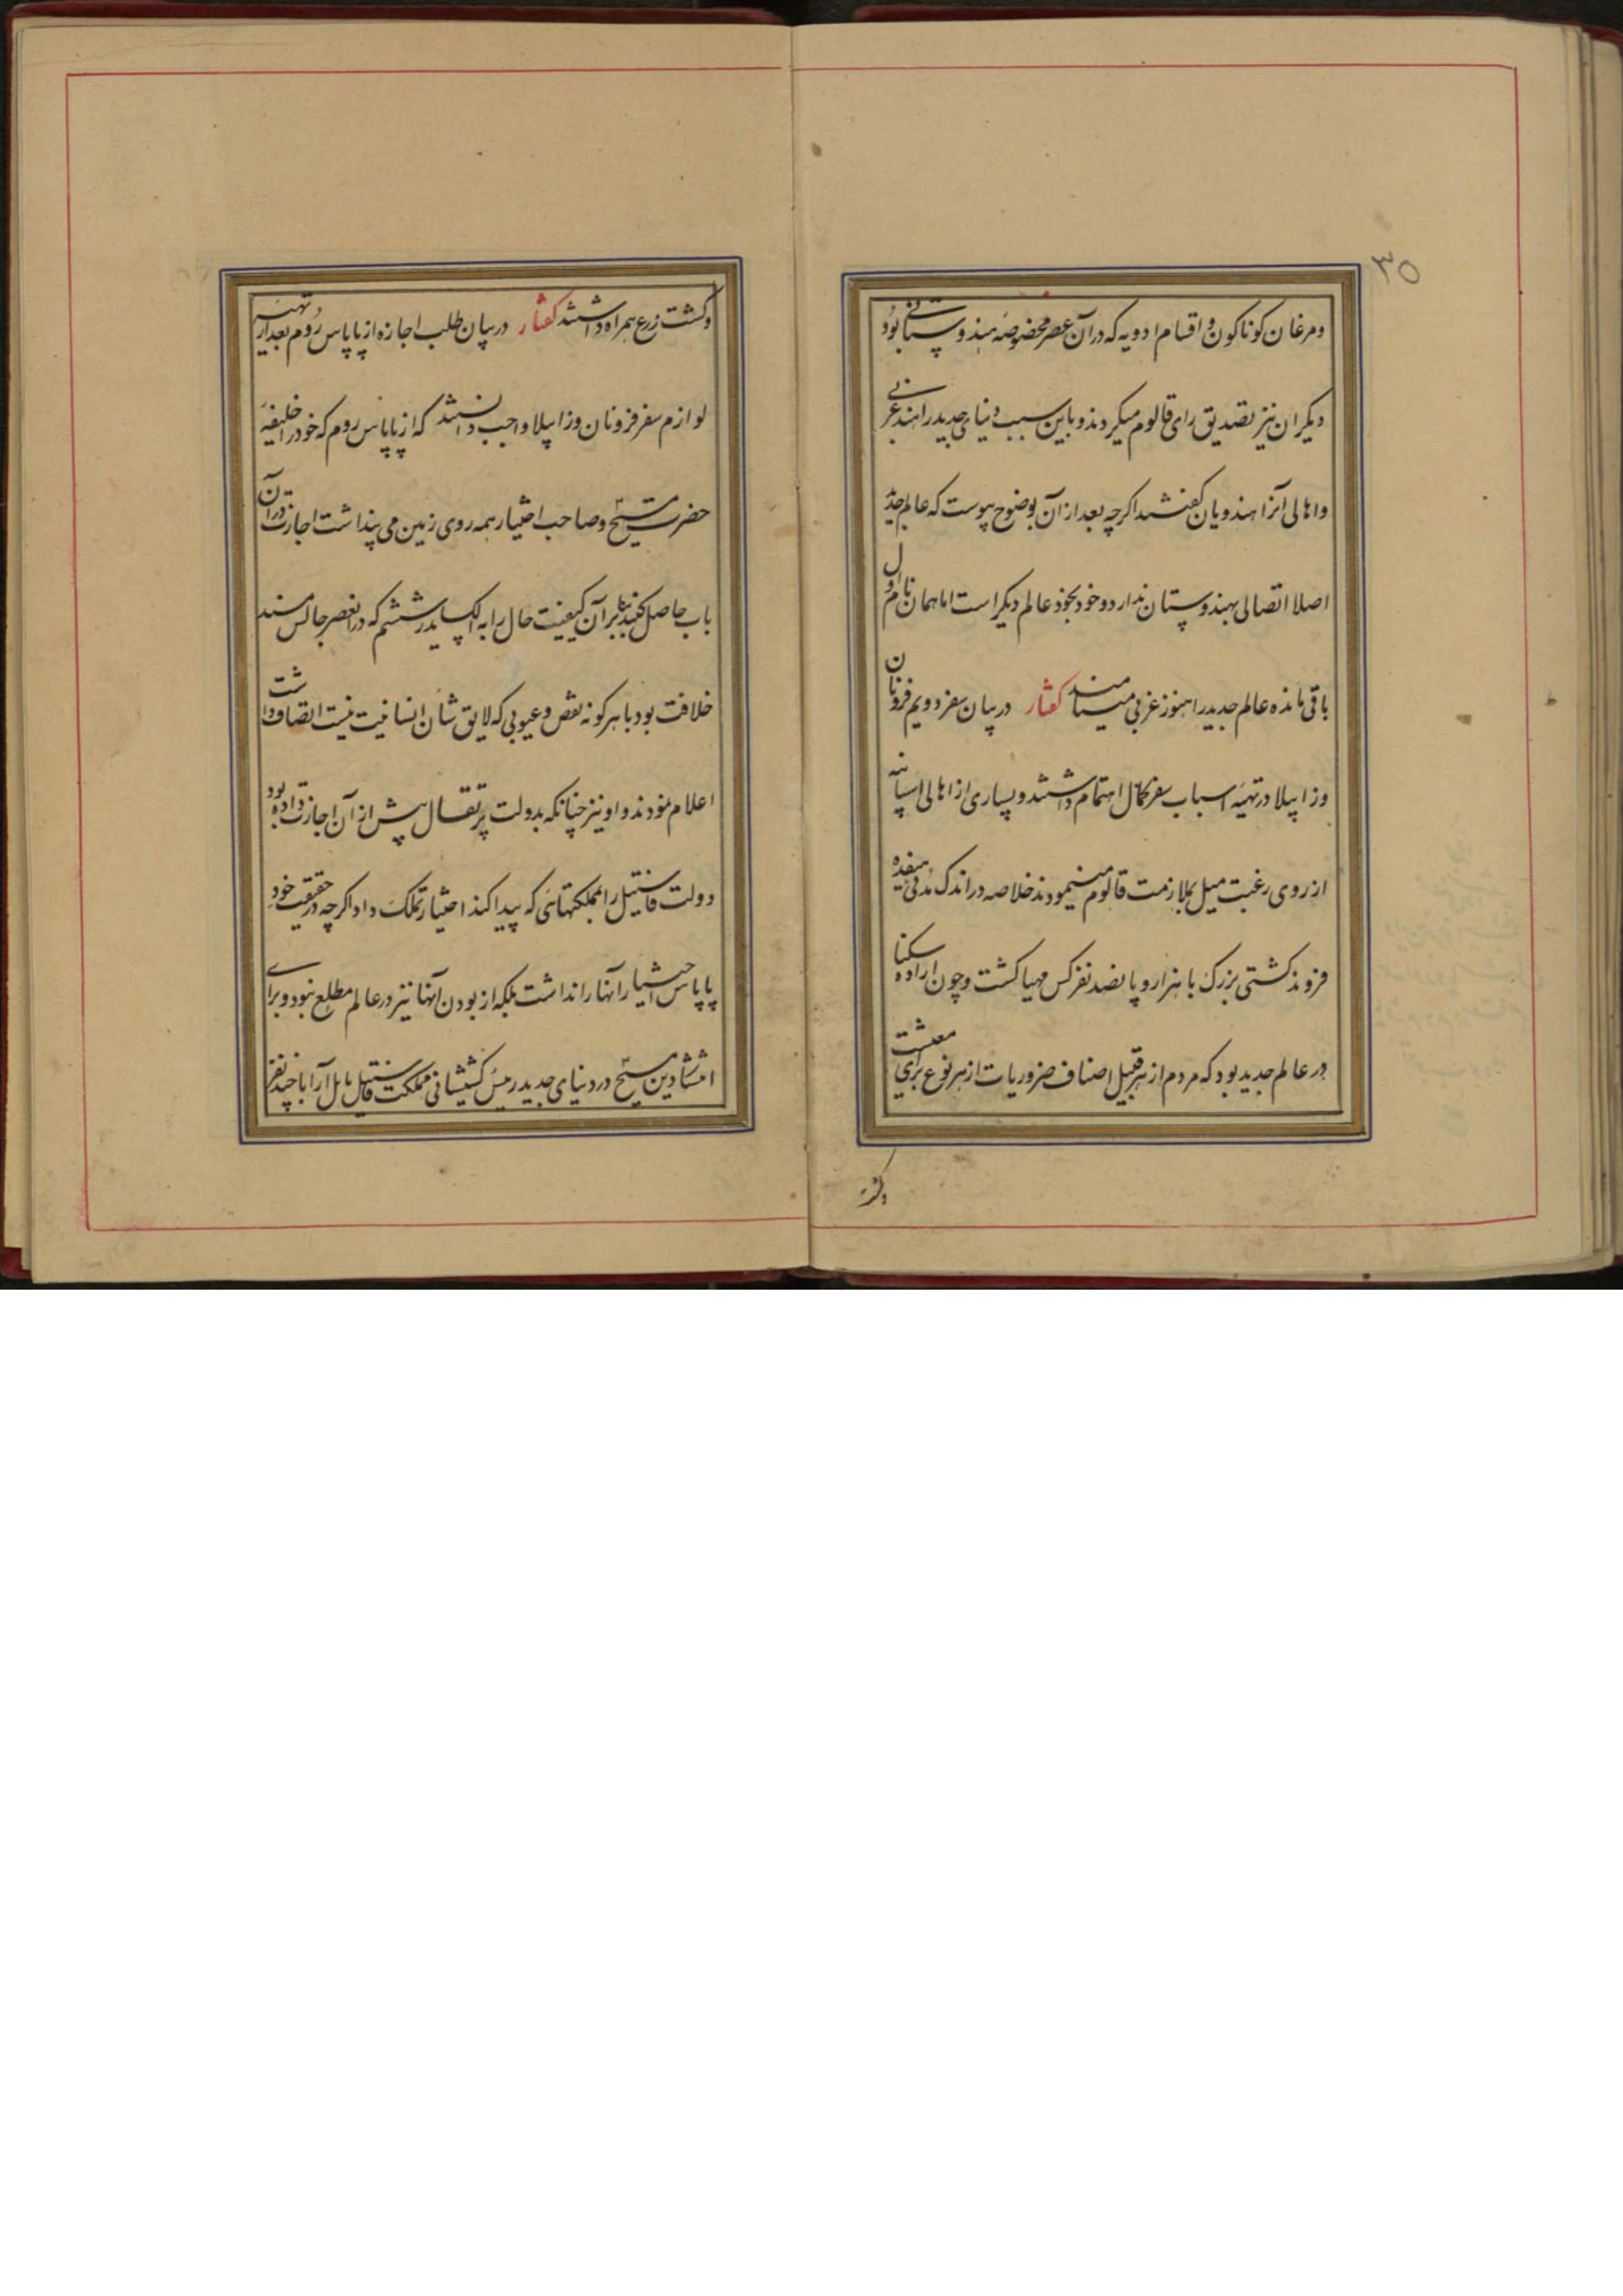 ۳۵
ومرغان کوناکون و اقسام ادویه که در آن عصر مخصوصهٔ هندوستانی بود
دیکران نیز تصدیق رای قالوم میکردند و باین سبب دنیای جدید را هند غربی
واهالی آنرا هندویان کفتند اکرچه بعد از آن بوضوح پیوست که عالم جدید
اصلا اتصالی بهندوستان ندارد و خود بخود عالم دیکر است اما همان نام اول
باقی مانده عالم جدید را هنوز غربی مینامند کفتار در بیان سفر دویم فرونان
وزابیلا در تهیه اسباب سفر کمال اهتمام داشتند و بسیاری از اهالی اسپانیه
از روی رغبت میل بملازمت قالوم مینمودند خلاصه در اندک مدتی هفده
فروند کشتی بزرک با هزار و پانصد نفر کس مهیا کشت و چون اراده سکنا
در عالم جدید بود که مردم از هر قبیل اصناف ضروریات از هر نوع برای معیشت
وکشت
وکشت زرع همراه داشتند کفتار در بیان طلب اجازه از پاپاس روم بعد از تهیه
لوازم سفر فرونان وزابیلا واجب دانستند که از پاپاس روم که خود را خلیفهٔ
حضرت مسیح وصاحب اختیار همه روی زمین می پنداشت اجازت در آن
باب حاصل کنند بنابر آن کیفیت حال را به الکساندر ششم که در آنعصر جالس مسند
خلافت بود با هر کونه نقص و عیوبی که لایق شان انسانیت نیست اتصاف داشت
اعلام نمودند و او نیز چنانکه بدولت پرتقال پیش از آن اجازت داده بود
دولت قاستیل را بمملکتهائی که پیدا کنند اختیار تملک داد اکرچه در حقیقت خود
پاپاس اختیار آنها را نداشت بلکه از بودن آنها نیز در عالم مطلع نبود و برای
انتشار دین مسیح در دنیای جدید رئیس کشیشانی مملکت قاستیل بایل آرا با چند نفر